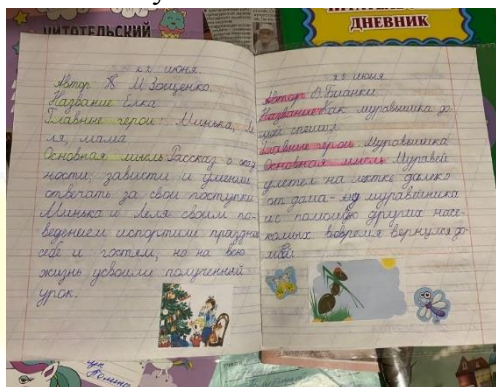 ЧИТАТЕЛЬСКИЙ
ДНЕВНИК
22 июня.
Автор М Зощенко
Название Ёлка
Главные герои: Минька, Лё
ля, мама
Основная мысль Рассказ о жад
ности, зависти и умении
отвечать за свои поступки
Минька и Леля своим по-
ведением испортили праздник
себе и гостям, но на всю
жизнь усвоили полученный
урок.
июня
Автор В Бианки
Название Как муравьишка до
мой спешил
Главные герои Муравьишка
Основная мысль Муравей
улетел на листке далеко
от дома-муравейника
и с помощью других насе-
комых вовремя вернулся до-
мой